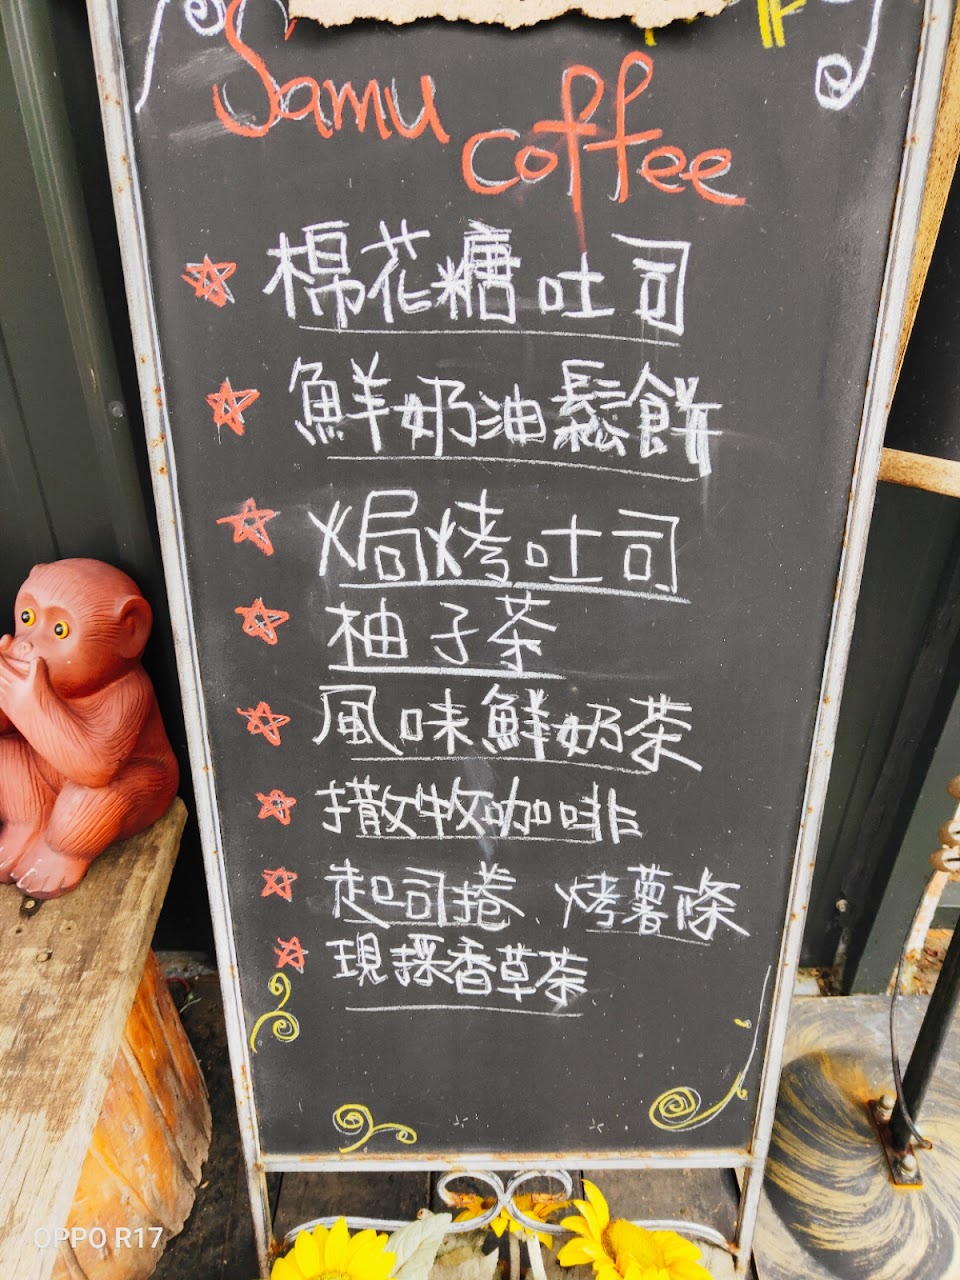 Samu
coffee
棉花糖吐司
鮮奶油鬆餅
焗烤吐司
柚子茶
風味鮮奶茶
撒牧咖啡
起司捲 烤薯條
現採香草茶
OPPO R17